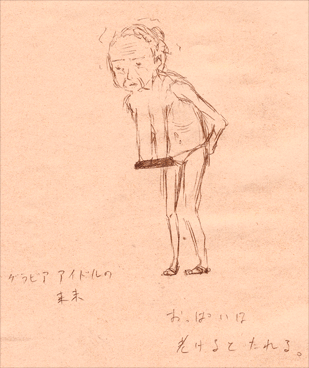 グラビアアイドルの
未来
おっぱいは
老けるとたれる。